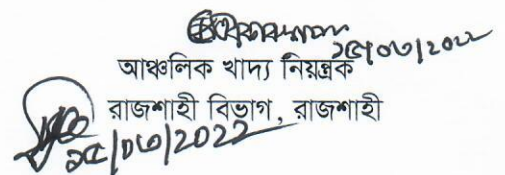 ১৫/০৩/২০২২
আঞ্চলিক খাদ্য নিয়ন্ত্রক
রাজশাহী বিভাগ, রাজশাহী
১৫/০৩/২০২২